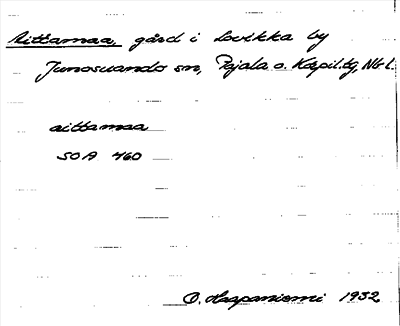 Aittamaa, gård i Lovikka by
Junosuando sn, Pajala o. Korpil. tg, Nb l.
aittamaa
SOA 460
O. Haapaniemi 1932